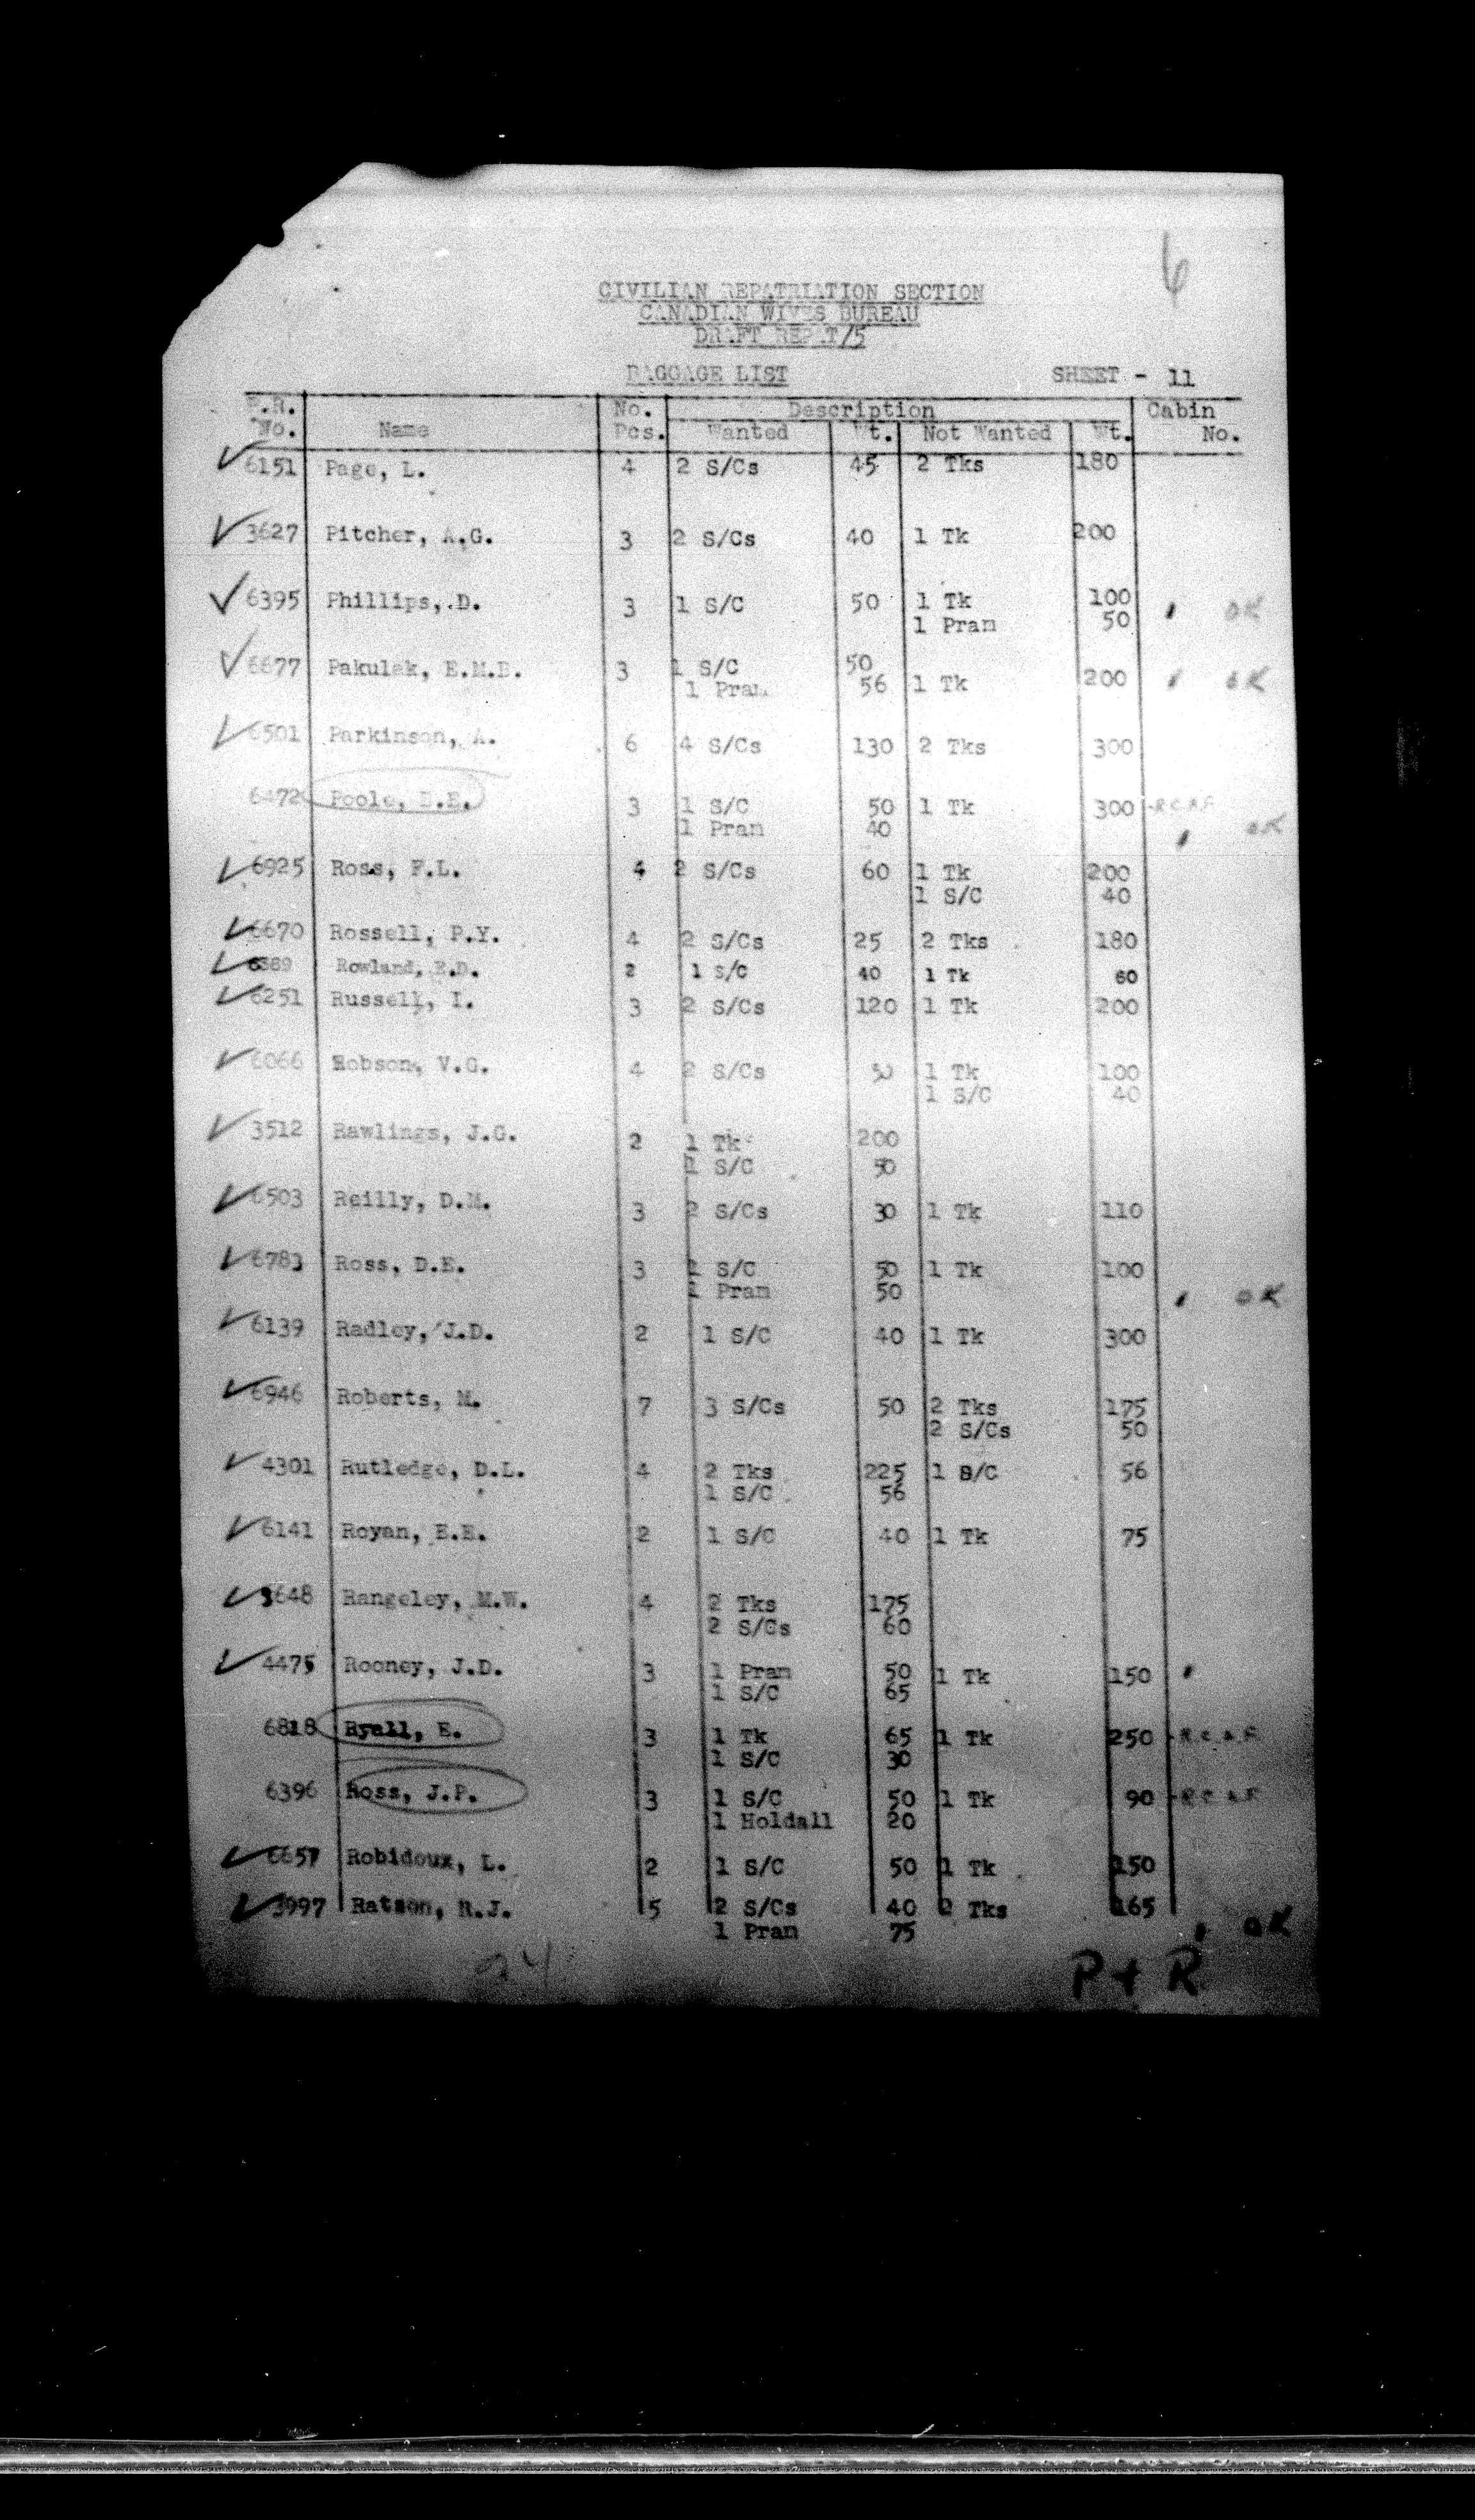 6
CIVILIAN REPATRIATION SECTION
CANADIAN WIVES BUREAU
DRAFT REPAT/5
BAGGAGE LIST SHEET - 11
No. Description Cabin
No. Name Pcs. Wanted Wt. Not Wanted Wt. No.
6151 Page, L. 4 2 S/Cs 45 2 Tks 180
3627 Pitcher, A.G. 3 2 S/Cs 40 1 Tk 200
6395 Phillips, D. 3 1 S/C 50 1 Tk 100
1 Pram 50 OK
6677 Pakulak, 3 1 S/C 50
1 Pram 56 1 Tk 200 OK
6501 Parkinson, A. 6 4 S/Cs 130 2 Tks 300
6472 Poole, 3 1 S/C 50 1 Tk 300 - R.C.A.F.
1 Pram 40 OK
6925 Ross, F.L. 4 2 S/Cs 60 1 Tk 200
1 S/C 40
6670 Rossell, P.Y. 4 2 S/Cs 25 2 Tks 180
6389 Rowland, E.D. 2 1 S/C 40 1 Tk 60
6251 Russell, I. 3 2 S/Cs 120 1 Tk 200
6066 Robson, V.G. 4 2 S/Cs 50 1 Tk 100
1 S/C 40
3512 Rawlings, J.G. 2 1 Tk 200
1 S/C 50
6503 Reilly, D.M. 3 2 S/Cs 30 1 Tk 110
6783 Ross, D.E. 3 1 S/C 50 1 Tk 100
1 Pram 50 OK
6139 Radley, J.D. 2 1 S/C 40 1 Tk 300
6946 Roberts, M. 7 3 S/Cs 50 2 Tks 175
2 S/Cs 50
4301 Rutledge, D.L. 4 2 Tks 225 1 S/C 56
1 S/C 56
6141 Royan, E.E. 2 1 S/C 40 1 Tk 75
3648 Rangeley, M.W. 4 2 Tks 175
2 S/Cs 60
4475 Rooney, J.D. 3 1 Pram 50 1 Tk 150
1 S/C 65
6818 Ryall, E. 3 1 Tk 65 1 Tk 250 - R.C.A.F.
1 S/C 30
6396 Ross, J.P. 3 1 S/C 50 1 Tk 90 - R.C.A.F.
1 Holdall 20
6657 Robidoux, L. 2 1 S/C 50 1 Tk 150
3997 Ratson, R.J. 5 2 S/Cs 40 2 Tks 165
1 Pram 75 OK
24 P + R